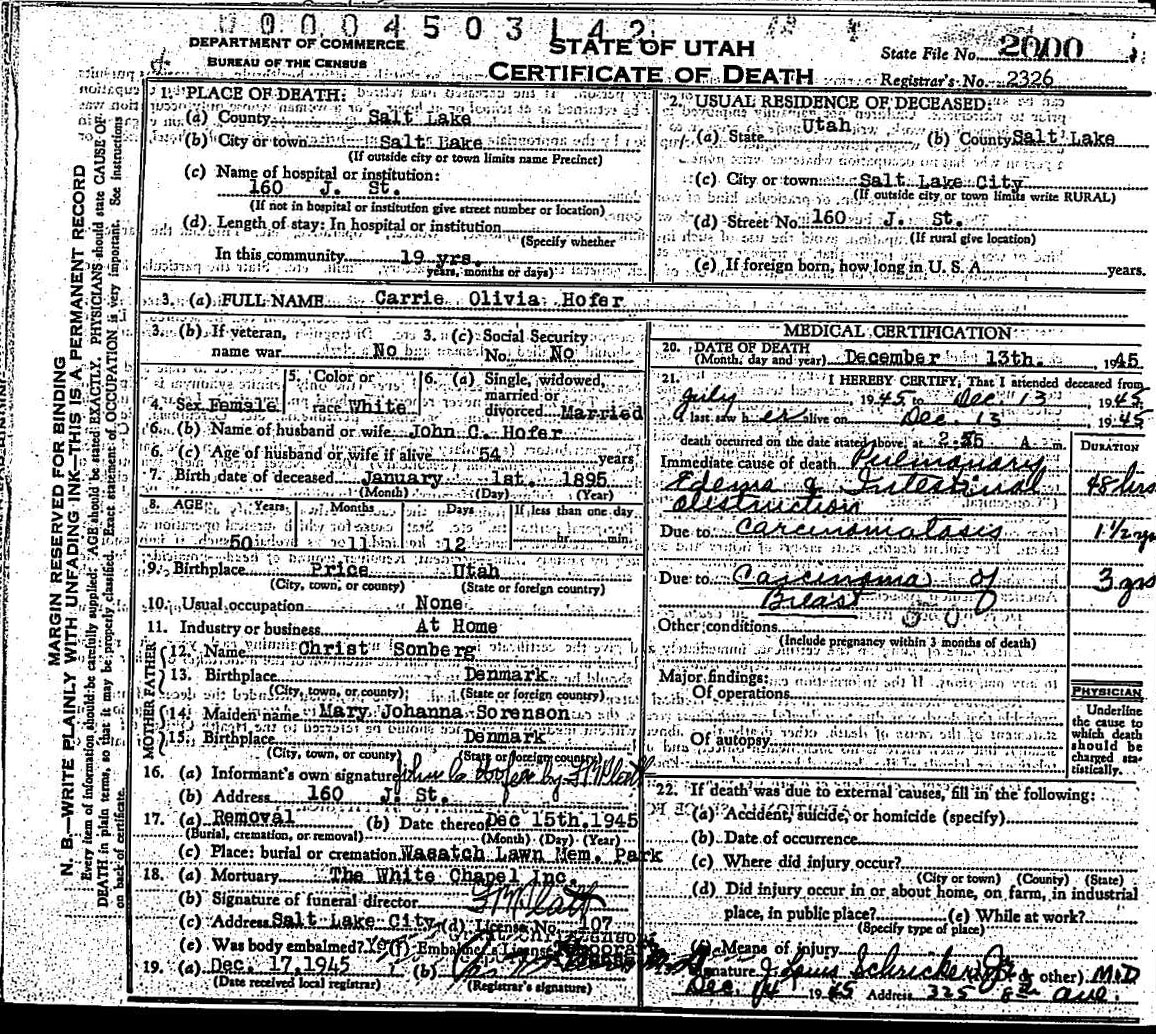 0 0 0 4 5 0 3 1 4 2
DEPARTMENT OF COMMERCE
BUREAU OF THE CENSUS
STATE OF UTAH
CERTIFICATE OF DEATH
State File No. 2000
Registrar's No. 2326
MARGIN RESERVED FOR BINDING
N. B.—WRITE PLAINLY WITH UNFADING INK—THIS IS A PERMANENT RECORD
Every item of information should be carefully supplied. AGE should be stated EXACTLY. PHYSICIANS should state CAUSE OF
DEATH in plain terms, so that it may be properly classified. Exact statement of OCCUPATION is very important. See instructions
on back of certificate.
1. PLACE OF DEATH:
(a) County Salt Lake
(b) City or town Salt Lake
(If outside city or town limits name Precinct)
(c) Name of hospital or institution:
160 J. St.
(If not in hospital or institution give street number or location)
(d) Length of stay: In hospital or institution
(Specify whether
In this community 19 yrs.
years, months or days)
2. USUAL RESIDENCE OF DECEASED:
(a) State Utah (b) County Salt Lake
(c) City or town Salt Lake City
(If outside city or town limits write RURAL)
(d) Street No. 160 J. St.
(If rural give location)
(e) If foreign born, how long in U. S. A. years.
3. (a) FULL NAME Carrie Olivia Hofer
3. (b) If veteran, 3. (c) Social Security
name war No No. No
4. Sex Female 5. Color or race White 6. (a) Single, widowed, married or divorced Married
6. (b) Name of husband or wife John C. Hofer
6. (c) Age of husband or wife if alive 54 years
7. Birth date of deceased January 1st. 1895
(Month) (Day) (Year)
8. AGE Years Months Days If less than one day
50 11 12 hr. min.
9. Birthplace Price Utah
(City, town, or county) (State or foreign country)
10. Usual occupation None
11. Industry or business At Home
FATHER
12. Name Christ Sonberg
13. Birthplace Denmark
(City, town, or county) (State or foreign country)
MOTHER
14. Maiden name Mary Johanna Sorenson
15. Birthplace Denmark
(City, town, or county) (State or foreign country)
16. (a) Informant's own signature John C Hofer by
(b) Address 160 J. St.
17. (a) Removal (b) Date thereof Dec 15th, 1945
(Burial, cremation, or removal) (Month) (Day) (Year)
(c) Place: burial or cremation Wasatch Lawn Mem. Park
18. (a) Mortuary The White Chapel Inc.
(b) Signature of funeral director
(c) Address Salt Lake City (d) License No. 107
(e) Was body embalmed? Yes (f) Embalmer's License
19. (a) Dec. 17, 1945 (b)
(Date received local registrar) (Registrar's signature)
MEDICAL CERTIFICATION
20. DATE OF DEATH
(Month, day and year) December 13th. 1945
21. I HEREBY CERTIFY, That I attended deceased from
July 1945 to Dec. 13, 1945
I last saw her alive on Dec. 13 1945
death occurred on the date stated above, at A. m.
DURATION
Immediate cause of death Pulmonary
Edema & Intestinal 48 hrs
obstruction
Due to Carcinomatosis 1 1/2 yr
Due to Carcinoma of 3 yrs
Breast
Other conditions
(Include pregnancy within 3 months of death)
Major findings:
Of operations
Of autopsy
PHYSICIAN
Underline
the cause to
which death
should be
charged sta-
tistically.
22. If death was due to external causes, fill in the following:
(a) Accident, suicide, or homicide (specify)
(b) Date of occurrence
(c) Where did injury occur?
(City or town) (County) (State)
(d) Did injury occur in or about home, on farm, in industrial
place, in public place? (e) While at work?
(Specify type of place)
(f) Means of injury
Signature J. Louis Schricker Jr. or other) M.D
Dec. 14 1945 Address 325 8th Ave.